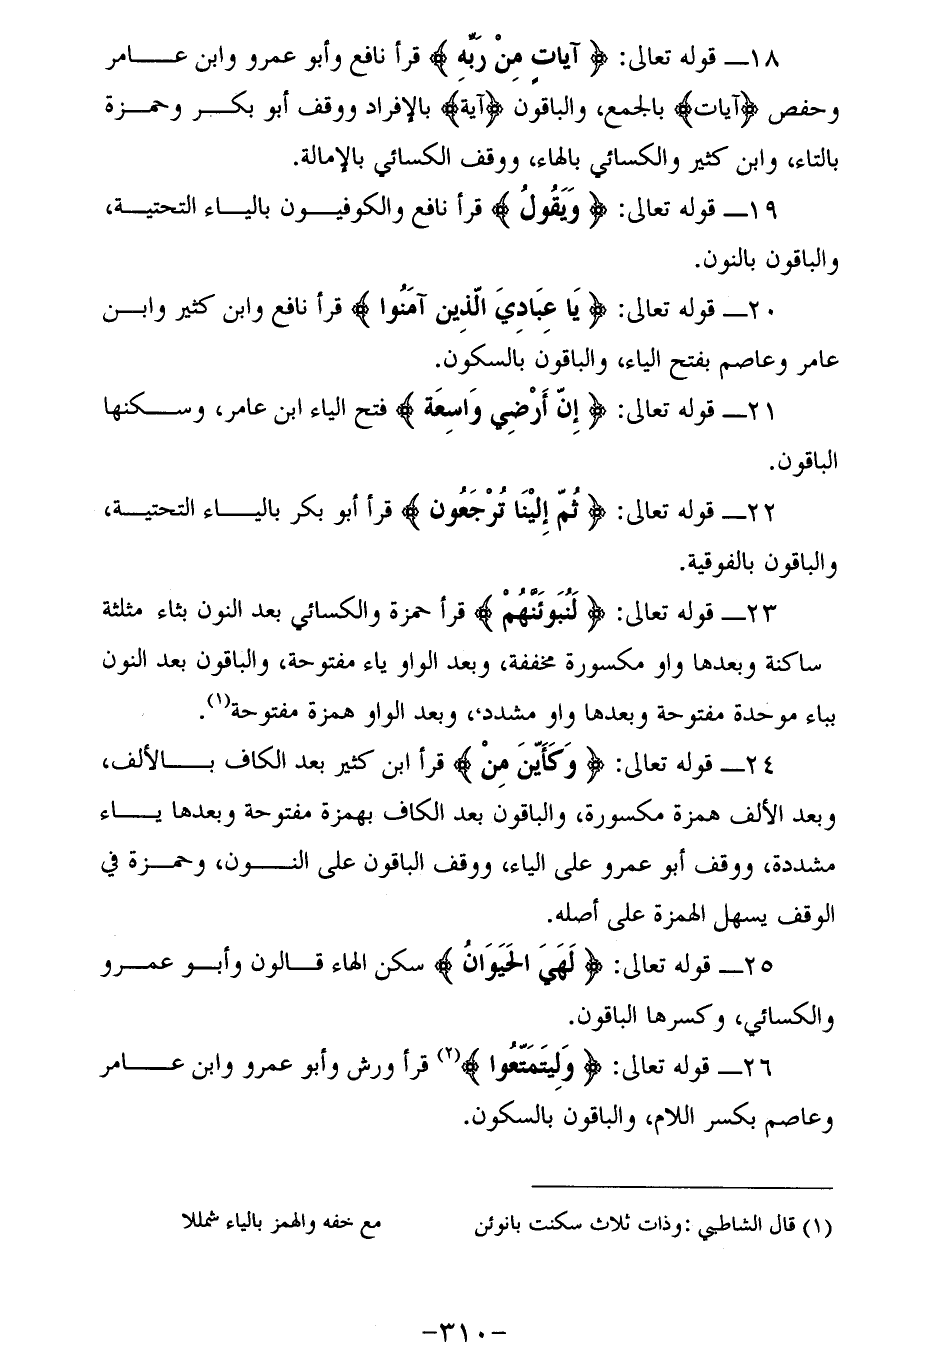 ١٨ــ قوله تعالى: ﴿ آيات مِنْ رَبِّهِ ﴾ قرأ نافع وأبو عمرو وابن عـــامر
وحفص ﴿آيات﴾ بالجمع، والباقون ﴿آية﴾ بالإفراد ووقف أبو بكــر وحمــزة
بالتاء، وابن كثير والكسائي بالهاء، ووقف الكسائي بالإمالة.
١٩ــ قوله تعالى: ﴿ وَيَقُولُ ﴾ قرأ نافع والكوفيــون باليــاء التحتيــة،
والباقون بالنون.
٢٠ــ قوله تعالى: ﴿ يَا عِبَادِيَ الَّذِين آمَنُوا ﴾ قرأ نافع وابن كثير وابــن
عامر وعاصم بفتح الياء، والباقون بالسكون.
٢١ــ قوله تعالى: ﴿ إِنّ أَرْضِي وَاسِعَة ﴾ فتح الياء ابن عامر، وســكنها
الباقون.
٢٢ــ قوله تعالى: ﴿ ثُمّ إِلَيْنَا تُرْجَعُون ﴾ قرأ أبو بكر باليــاء التحتيــة،
والباقون بالفوقية.
٢٣ــ قوله تعالى: ﴿ لَنُبَوئَنَّهُمْ ﴾ قرأ حمزة والكسائي بعد النون بثاء مثلثة
ساكنة وبعدها واو مكسورة مخففة، وبعد الواو ياء مفتوحة، والباقون بعد النون
بباء موحدة مفتوحة وبعدها واو مشدد، وبعد الواو همزة مفتوحة(١).
٢٤ــ قوله تعالى: ﴿ وَكَأَيّن مِنْ ﴾ قرأ ابن كثير بعد الكاف بـــالألف،
وبعد الألف همزة مكسورة، والباقون بعد الكاف بهمزة مفتوحة وبعدها يـــاء
مشددة، ووقف أبو عمرو على الياء، ووقف الباقون على النــون، وحمــزة في
الوقف يسهل الهمزة على أصله.
٢٥ــ قوله تعالى: ﴿ لَهَيَ الحَيَوَانُ ﴾ سكن الهاء قــالون وأبــو عمــرو
والكسائي، وكسرها الباقون.
٢٦ــ قوله تعالى: ﴿ وَلِيَتَمَتّعُوا ﴾(٢) قرأ ورش وأبو عمرو وابن عـــامر
وعاصم بكسر اللام، والباقون بالسكون.
(١) قال الشاطبي :وذات ثلاث سكنت بانوئن مع خفه والهمز بالياء شمللا
-٣١٠-